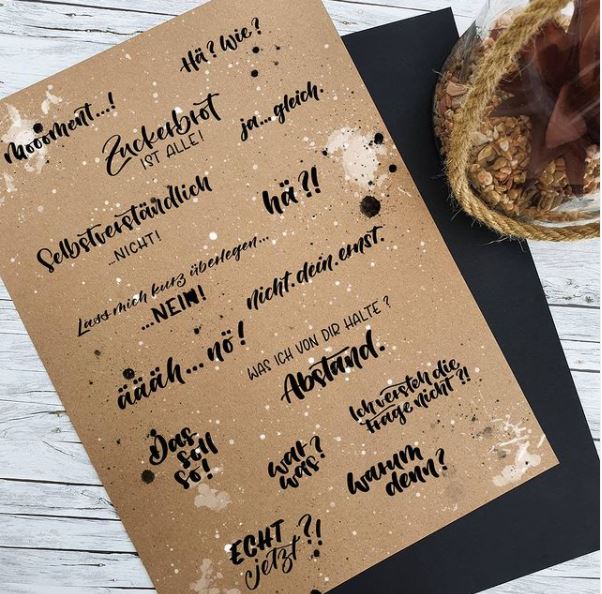 Hä? Wie?
Moooment...!
Zuckerbrot
IST ALLE!
ja...gleich.
Selbstverständlich
...NICHT!
hä?!
Lass mich kurz überlegen...
...NEIN!
nicht.dein.ernst.
äääh...nö!
WAS ICH VON DIR HALTE?
Abstand.
Ich versteh die
Frage nicht?!
Das
soll
so!
war
was?
warum
denn?
ECHT
jetzt?!